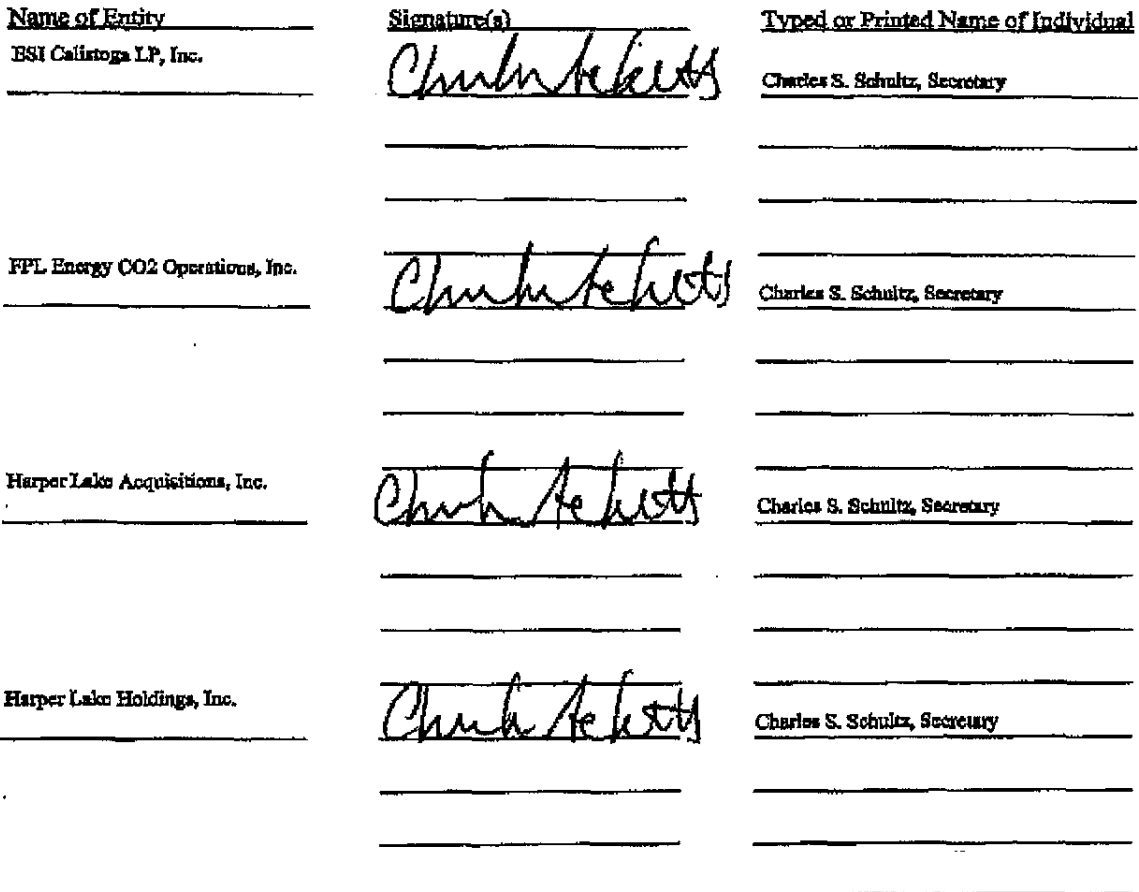 Name of Entity Signature(s) Typed or Printed Name of Individual
ESI Calistoga LP, Inc.
Charles S. Schultz, Secretary
FPL Energy CO2 Operations, Inc.
Charles S. Schultz, Secretary
Harper Lake Acquisitions, Inc.
Charles S. Schultz, Secretary
Harper Lake Holdings, Inc.
Charles S. Schultz, Secretary